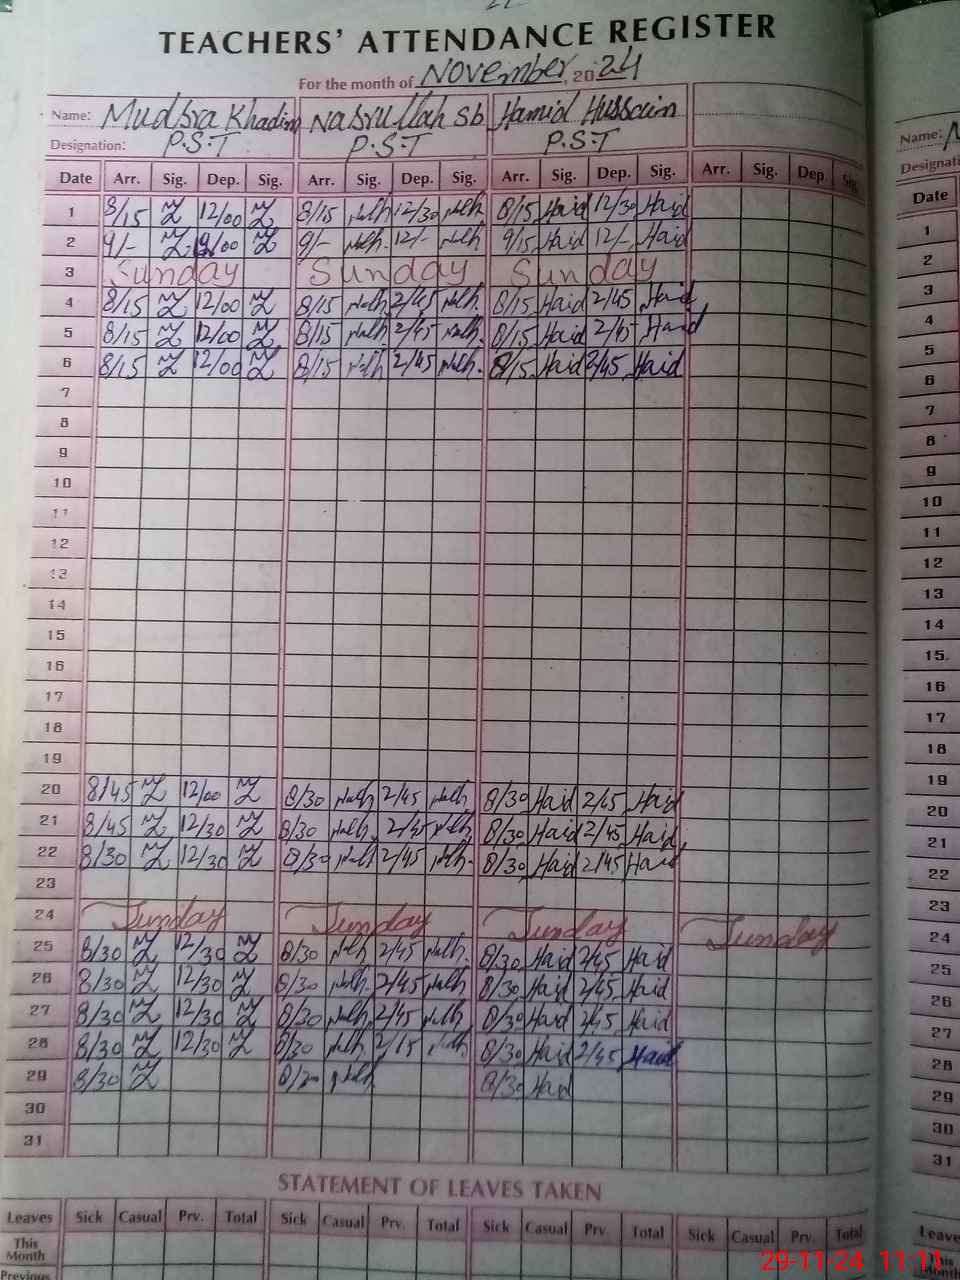 TEACHERS' ATTENDANCE REGISTER
For the month of November, 2024
Name: Mudbra Khadim Nasrullah Sb Hamid Hussain
Designation: P.S.T P.S.T P.S.T
Date Arr. Sig. Dep. Sig. Arr. Sig. Dep. Sig. Arr. Sig. Dep. Sig. Arr. Sig. Dep. Sig.
1 8/15 12/00 8/15 12/30 8/15 Haid 12/30 Haid
2 9/- 9/- 12/- 9/15 Haid 12/- Haid
3 Sunday Sunday Sunday
4 8/15 12/00 8/15 2/45 8/15 Haid 2/45 Haid
5 8/15 12/00 8/15 2/45 8/15 Haid 2/45 Haid
6 8/15 12/00 8/15 2/45 8/15 Haid 2/45 Haid
7
8
9
10
11
12
13
14
15
16
17
18
19
20 8/45 12/00 8/30 2/45 8/30 Haid 2/45 Haid
21 8/45 12/30 8/30 2/45 8/30 Haid 2/45 Haid
22 8/30 12/30 8/30 2/45 8/30 Haid 2/45 Haid
23
24 Sunday Sunday Sunday Sunday
25 8/30 12/30 8/30 2/45 8/30 Haid 2/45 Haid
26 8/30 12/30 8/30 2/45 8/30 Haid 2/45 Haid
27 8/30 12/30 8/30 2/45 8/30 Haid 2/45 Haid
28 8/30 12/30 8/30 8/30 Haid 2/45 Haid
29 8/30 8/30 Haid
30
31
STATEMENT OF LEAVES TAKEN
Leaves Sick Casual Prv. Total Sick Casual Prv. Total Sick Casual Prv. Total Sick Casual Prv. Total
This Month
Previous
Name:
Date
1
2
3
4
5
6
7
8
9
10
11
12
13
14
15
16
17
18
19
20
21
22
23
24
25
26
27
28
29
30
31
29-11-24 11:11